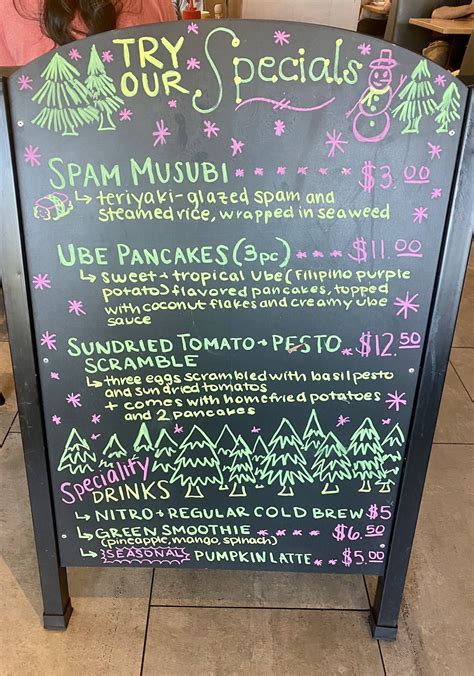 TRY OUR Specials
SPAM MUSUBI $3.00
↳ teriyaki-glazed spam and
steamed rice, wrapped in seaweed
UBE PANCAKES (3pc) $11.00
↳ sweet + tropical ube (filipino purple
potato) flavored pancakes, topped
with coconut flakes and creamy ube
sauce
SUNDRIED TOMATO + PESTO $12.50
SCRAMBLE
↳ three eggs scrambled with basil pesto
and sundried tomatos
+ comes with home fried potatoes
and 2 pancakes
Speciality
DRINKS
↳ NITRO + REGULAR COLD BREW $5
↳ GREEN SMOOTHIE $6.50
(pineapple, mango, spinach)
↳ SEASONAL PUMPKIN LATTE $5.00